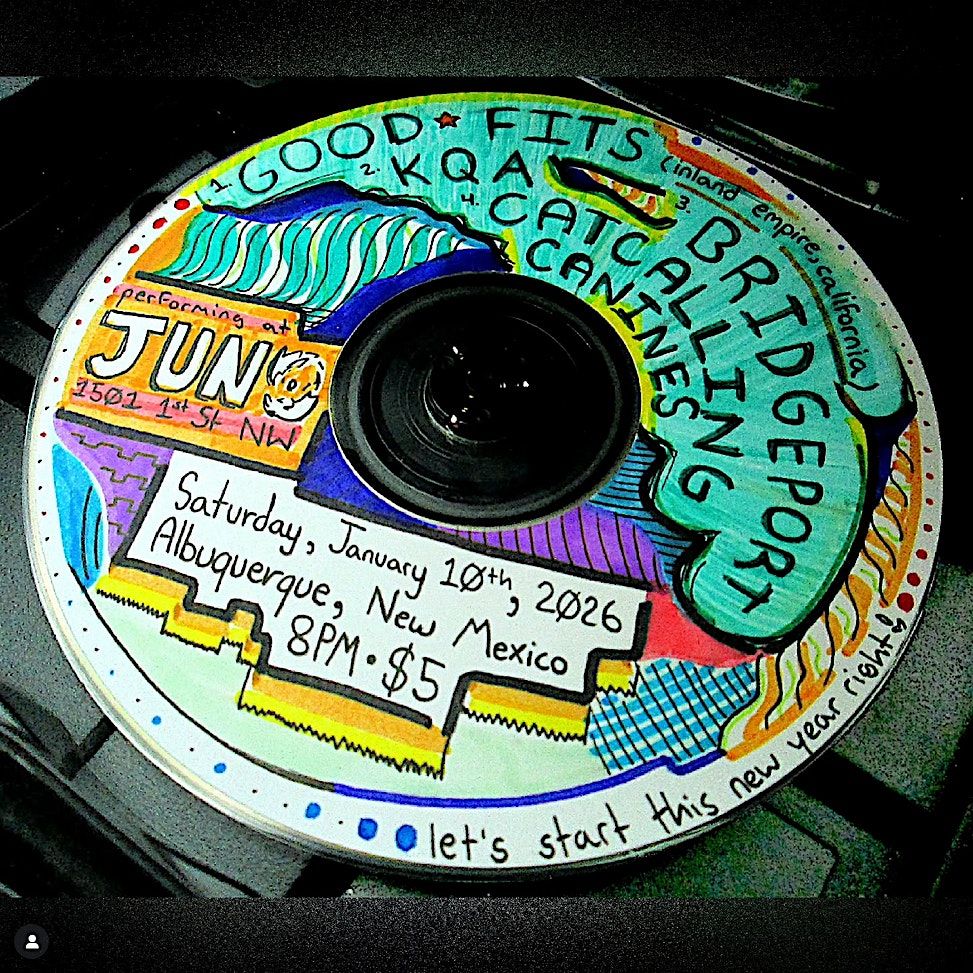 1. GOOD★FITS
(inland empire, california)
2. KQA
3. BRIDGEPORT
4. CATCALLING
CANINES
performing at
JUNO
1501 1st St NW
Saturday, January 10th, 2026
Albuquerque, New Mexico
8PM • $5
let's start this new year right!